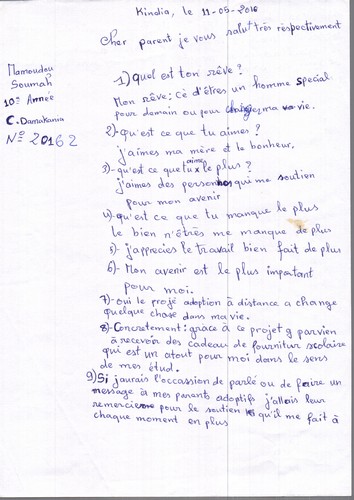 Kindia, le 11-05-2016
Cher parent je vous salut très respectivement
Mamoudou
Soumah
10e Année
C. Damakania
N° 20162
1) quel est ton rêve ?
Mon rêve: cè d'êtres un homme special
pour demain ou pour changer ma vie.
2)-qu'est ce que tu aimes ?
j'aimes ma mère et le bonheur.
3)-qu'est ce que tu aimes le plus ?
j'aimes des personnes qui me soutien
pour mon avenir
4)-qu'est ce que tu manque le plus
le bien n'êtres me manque de plus
5)- j'apprecies le travail bien fait de plus
6)- Mon avenir est le plus important
pour moi.
7)- oui le projé adoption à distance a change
quelque chose dans ma vie.
8)-Concretement: grâce à ce projet g parvien
à recevoir des cadeau de fournitur scolaire
qui est un atout pour moi dans le sens
de mes étud.
9) Si jaurais l'occassion de parlé ou de faire un
message à mes parents adoptifs j'allais leur
remercier pour le soutien qu'il me fait à
chaque moment en plus